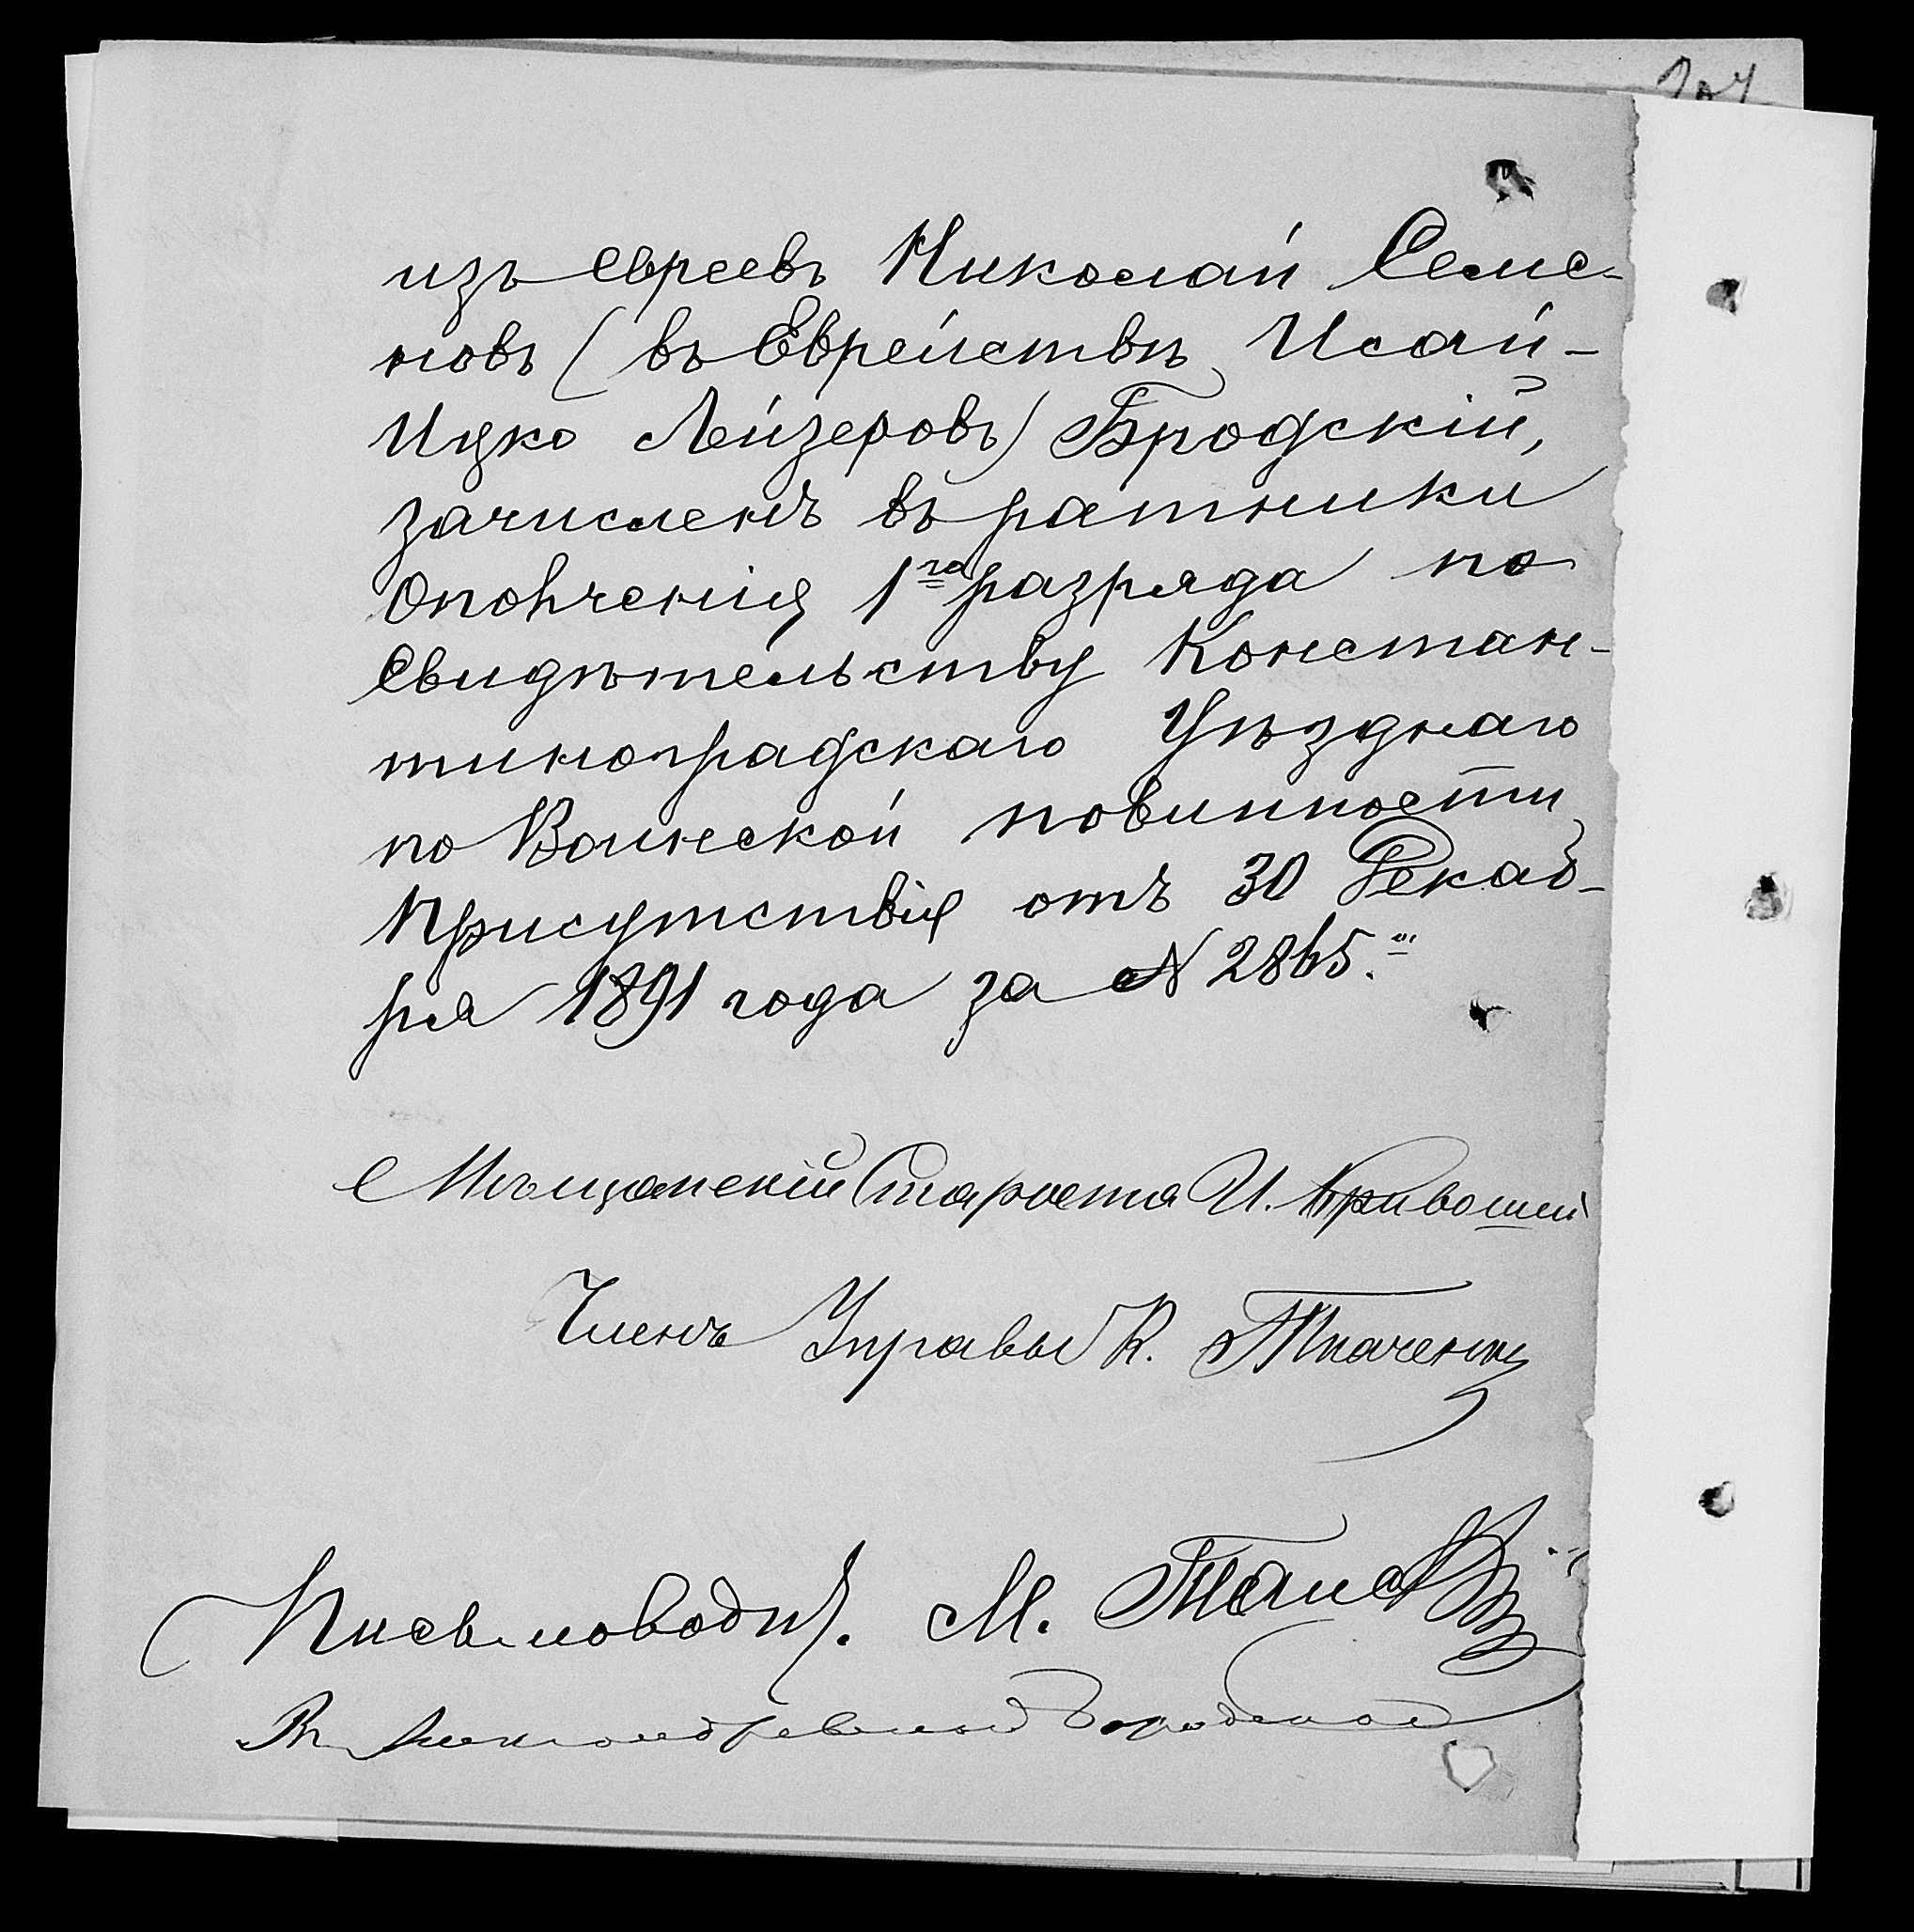 изъ евреевъ Николай Семе-
новъ (въ Еврействѣ Исай-
Ицко Лейзеровъ) Бродскій,
зачисленъ въ ратники
Ополченія 1го разряда по
Свидѣтельству Констан-
тиноградскаго Уѣзднаго
по Воинской повинности
Присутствія отъ 30 Декаб-
ря 1891 года за № 2865."
Мѣщанскій Староста И. Кривошей
Членъ Управы К. Ткаченко
Письмоводит. М.